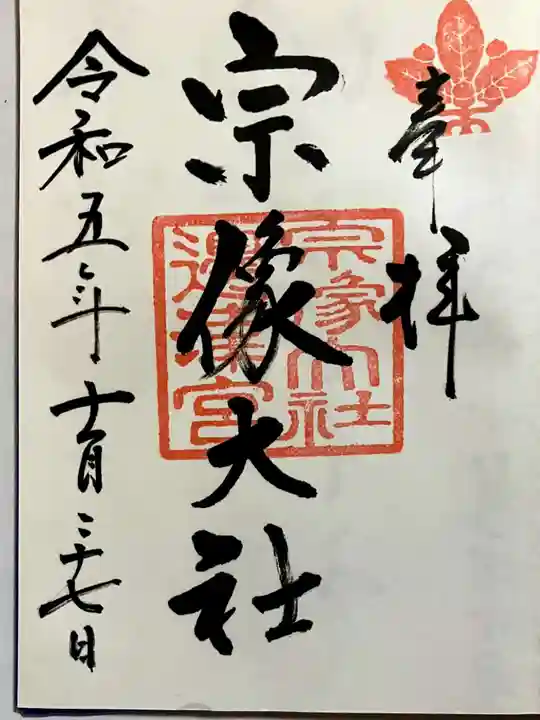 奉拝
宗像大社
宗像大社
邊津宮
令和五年十一月二十七日